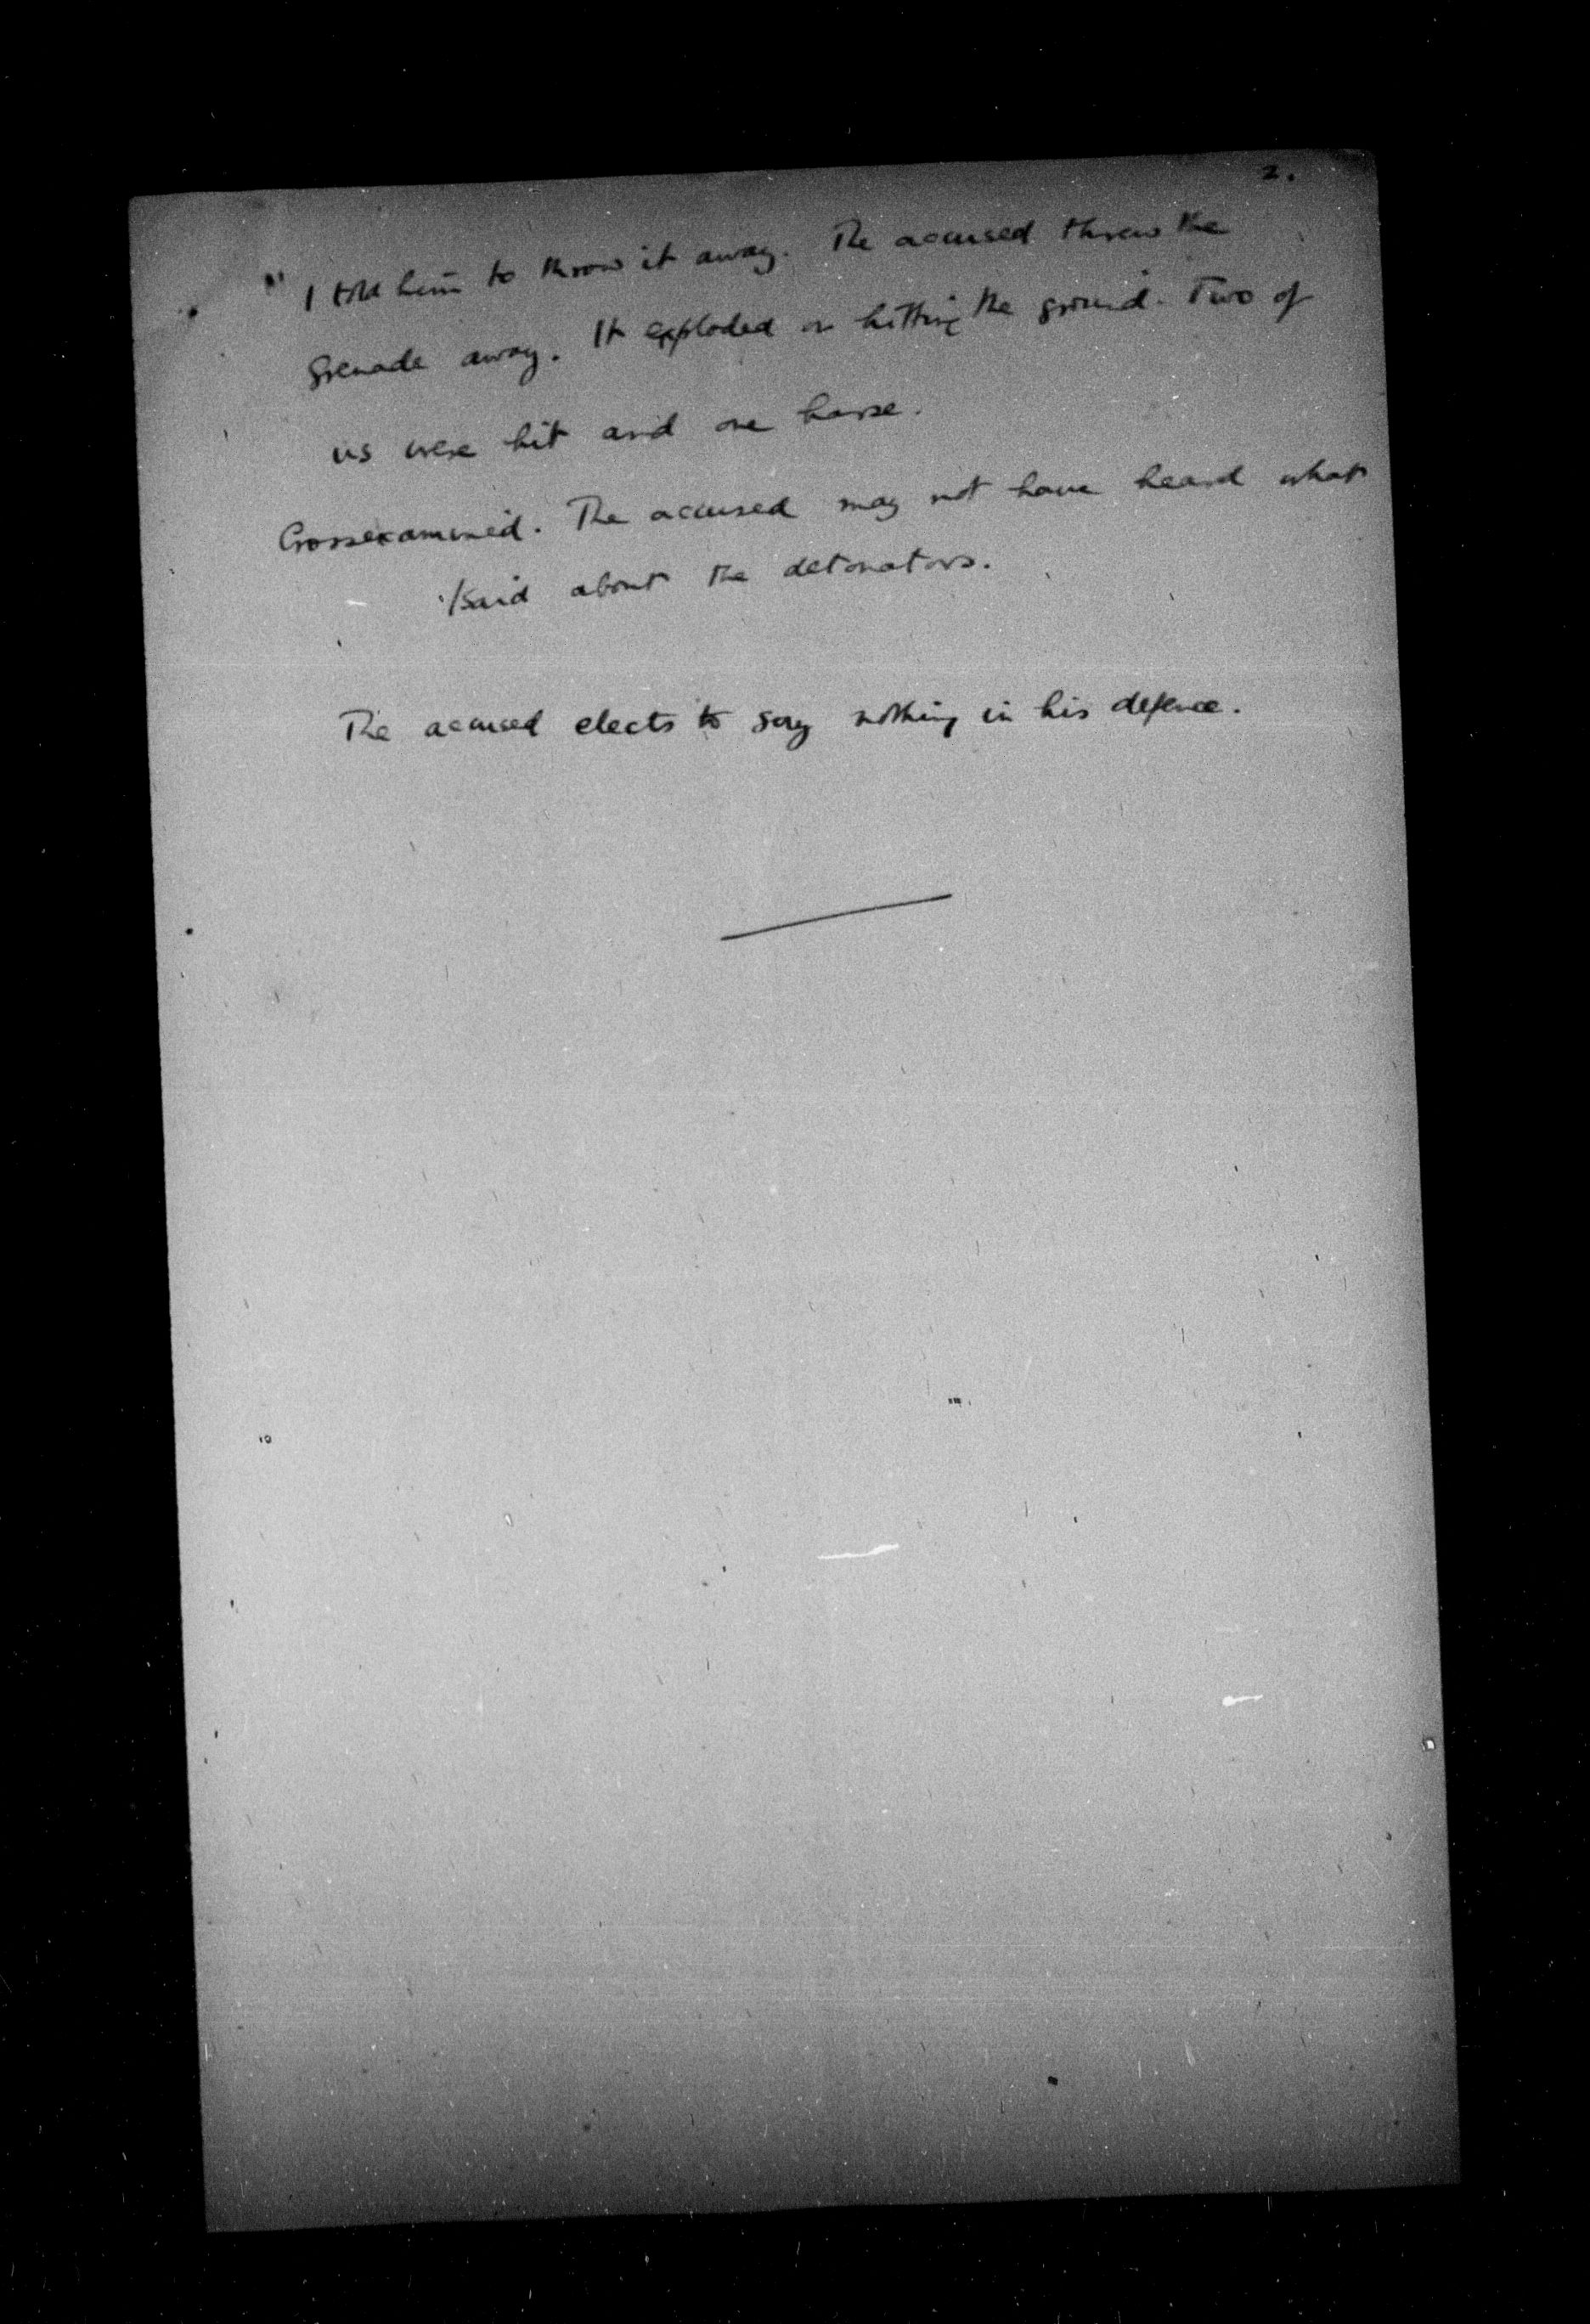 2.
" I told him to throw it away. The accused threw the
grenade away. It exploded on hitting the ground. Two of
us were hit and one horse.
Crossexamined. The accused may not have heard what
I said about the detonators.
The accused elects to say nothing in his defence.